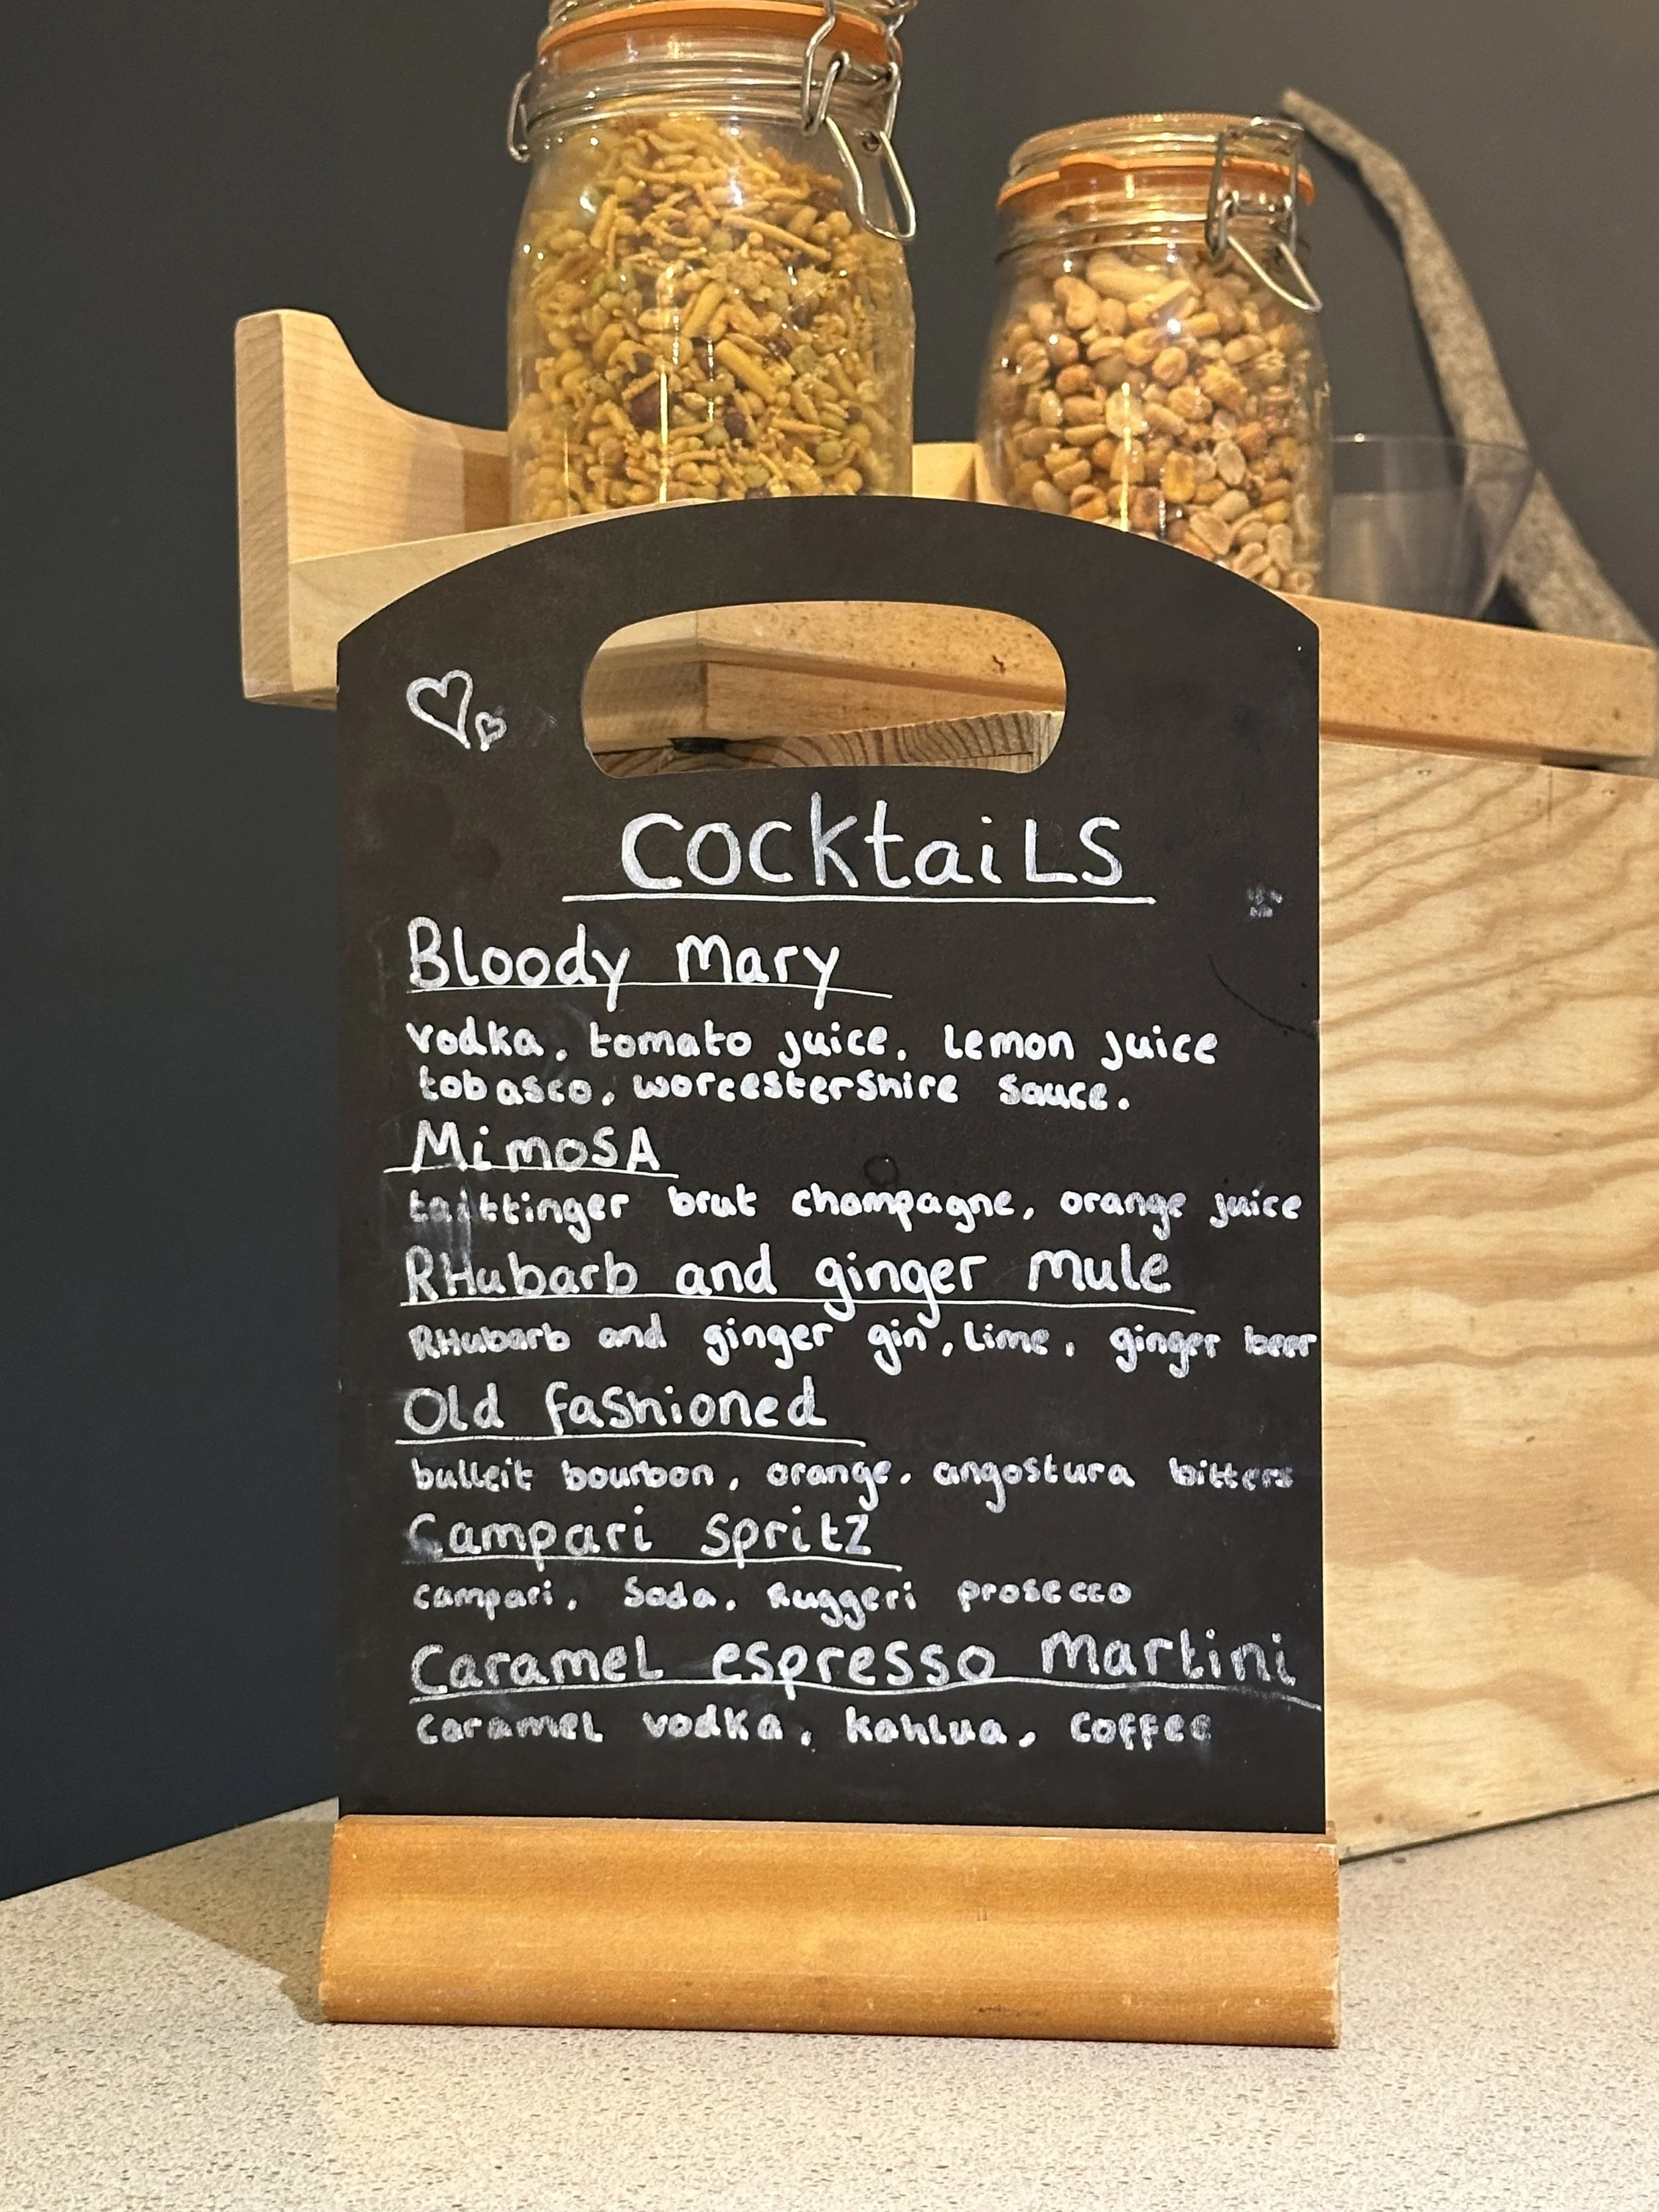 Cocktails
Bloody Mary
vodka, tomato juice, Lemon juice
tobasco, worcestershire sauce.
MimoSA
taittinger brut champagne, orange juice
RHubarb and ginger mule
RHubarb and ginger gin, Lime, ginger beer
Old fashioned
bulleit bourbon, orange, angostura bitters
Campari spritz
campari, Soda, Ruggeri prosecco
Caramel espresso martini
caramel vodka, kahlua, coffee